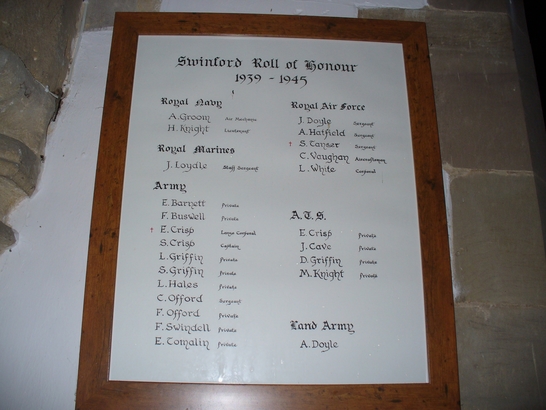 Swinford Roll of Honour
1939 - 1945
Royal Navy
A. Groom Air Mechanic
H. Knight Lieutenant
Royal Marines
J. Loydle Staff Sergeant
Army
E. Barnett Private
F. Buswell Private
† E. Crisp Lance Corporal
S. Crisp Captain
L. Griffin Private
S. Griffin Private
L. Hales Private
C. Offord Sergeant
F. Offord Private
F. Swindell Private
E. Tomalin Private
Royal Air Force
J. Doyle Sergeant
A. Hatfield Sergeant
† S. Tanser Sergeant
C. Vaughan Aircraftman
L. White Corporal
A.T.S.
E. Crisp Private
J. Cave Private
D. Griffin Private
M. Knight Private
Land Army
A. Doyle